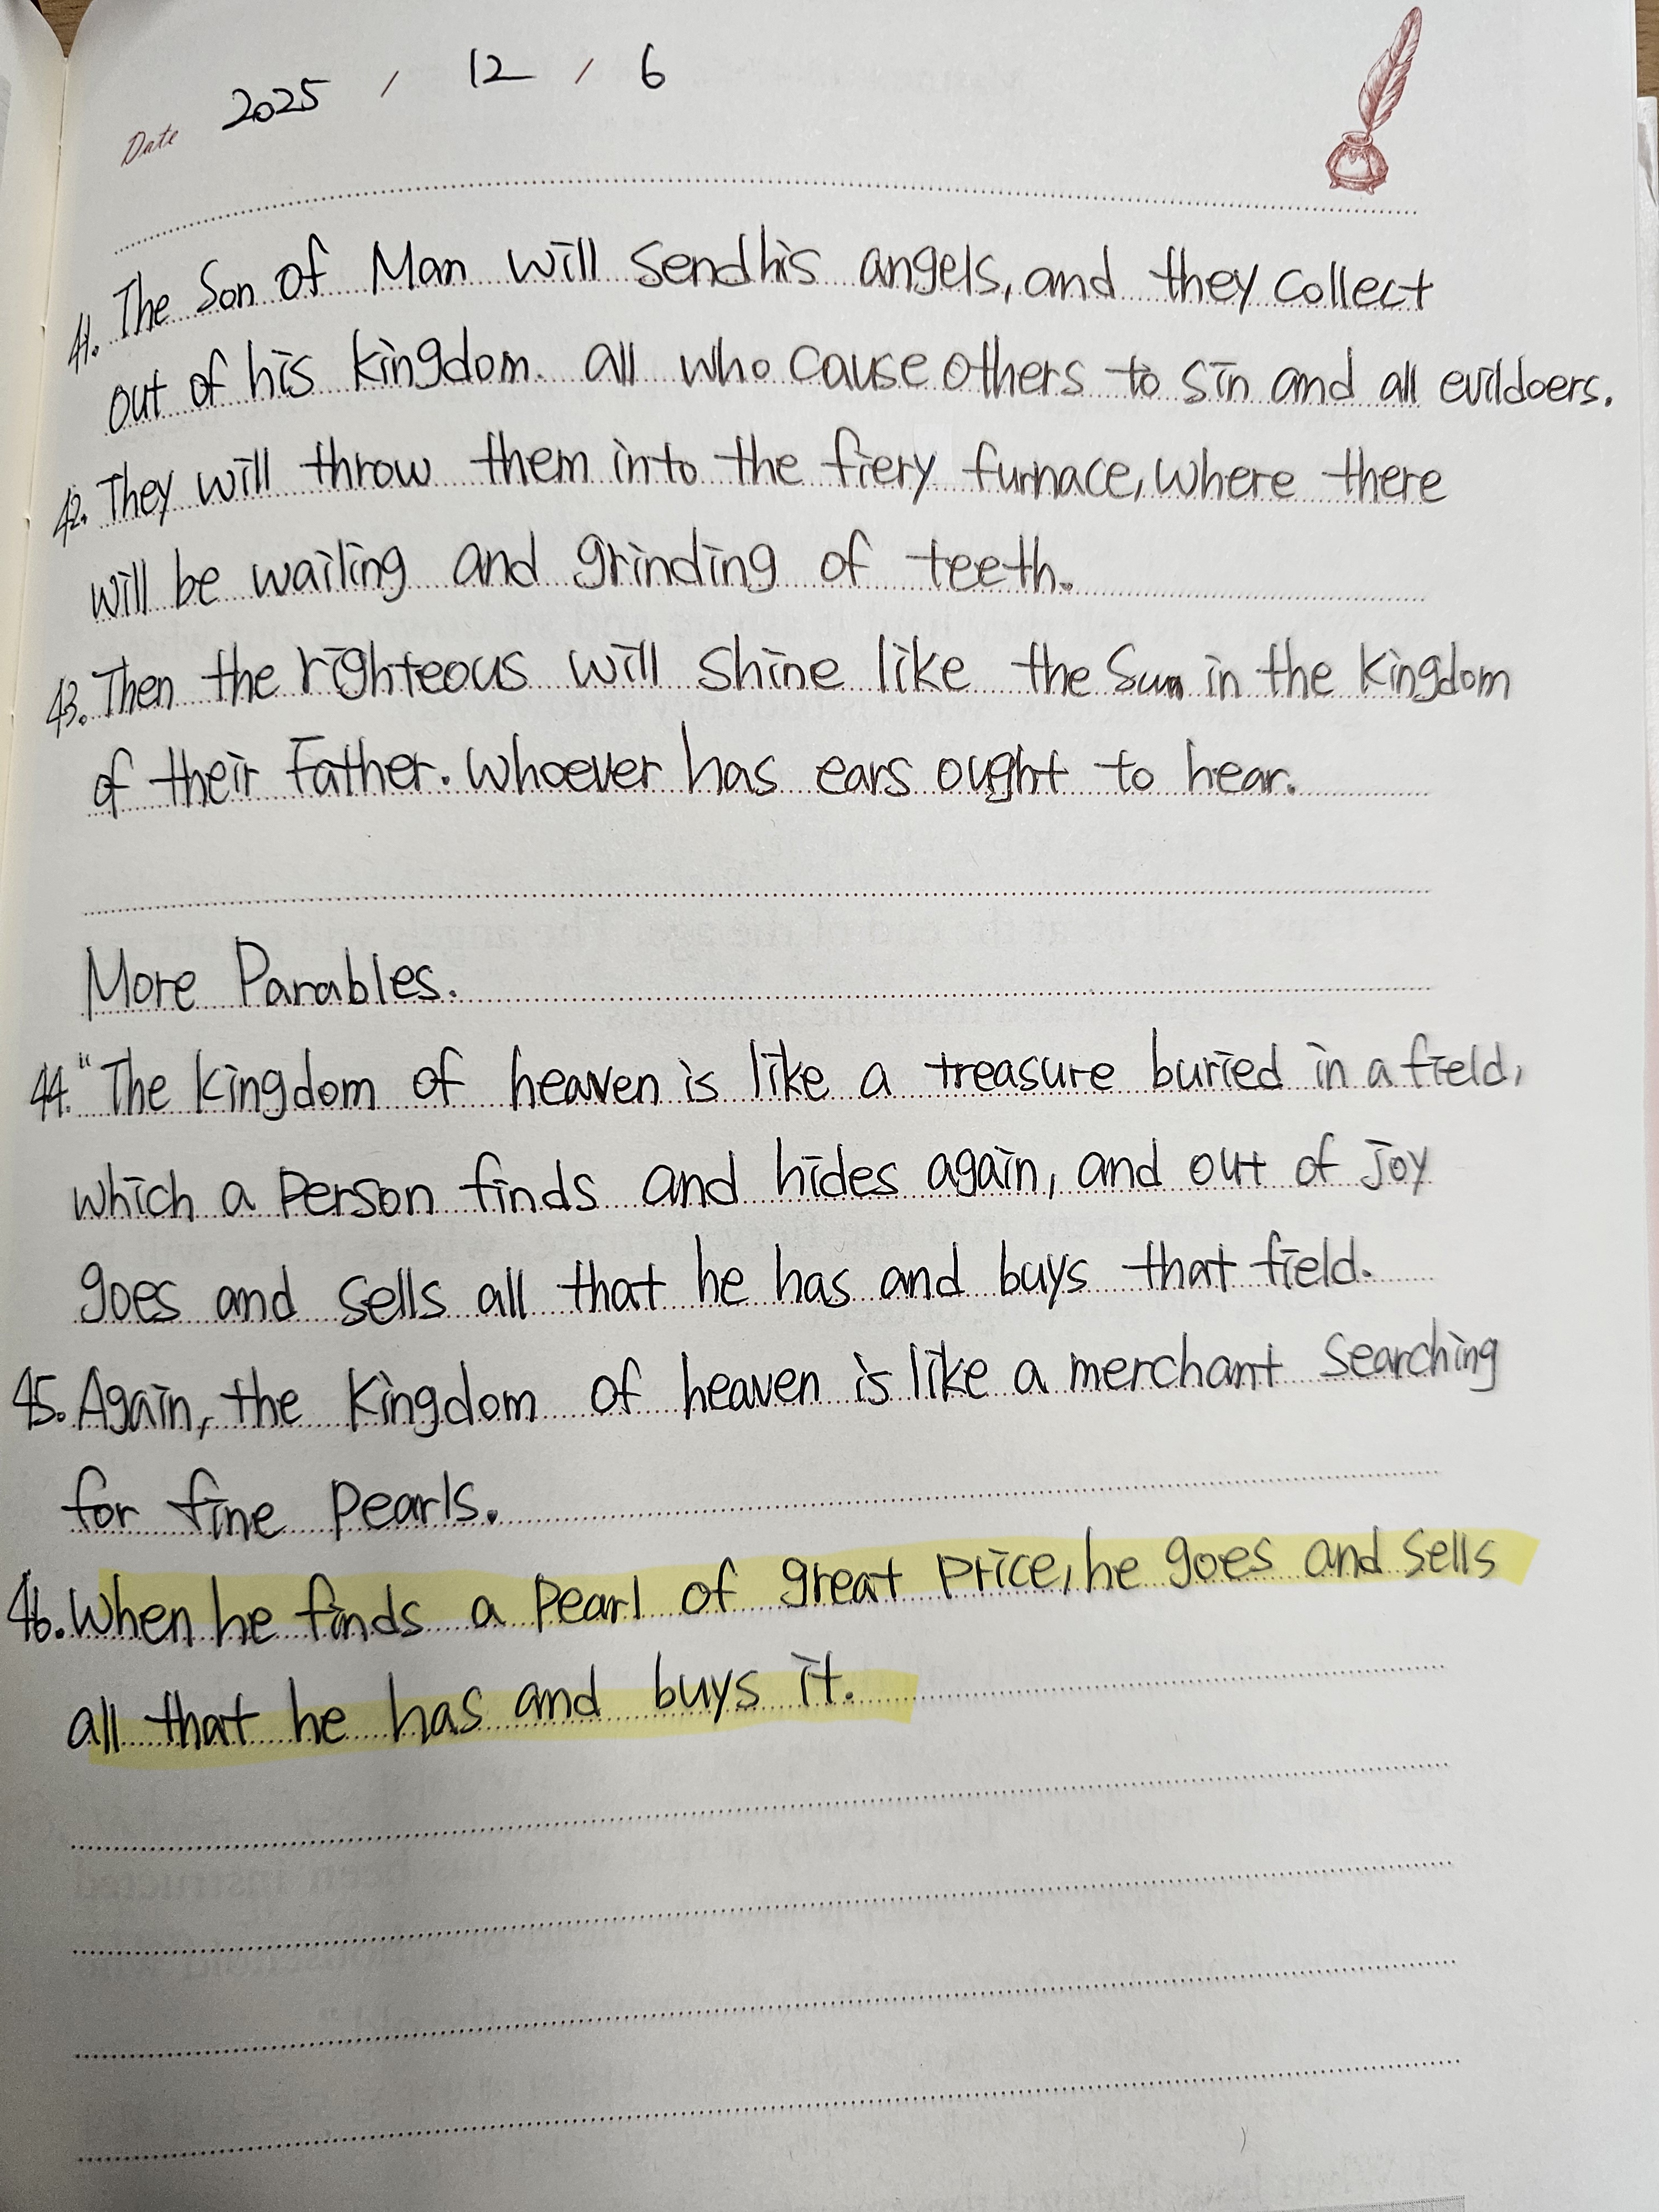 Date 2025 / 12 / 6
41. The Son of Man will send his angels, and they collect
out of his kingdom. all who cause others to sin and all evildoers.
42. They will throw them into the fiery furnace, where there
will be wailing and grinding of teeth.
43. Then the righteous will shine like the Sun in the kingdom
of their Father. Whoever has ears ought to hear.
More Parables.
44. "The kingdom of heaven is like a treasure buried in a field,
which a person finds and hides again, and out of joy
goes and sells all that he has and buys that field.
45. Again, the kingdom of heaven is like a merchant searching
for fine pearls.
46. When he finds a pearl of great price, he goes and sells
all that he has and buys it.